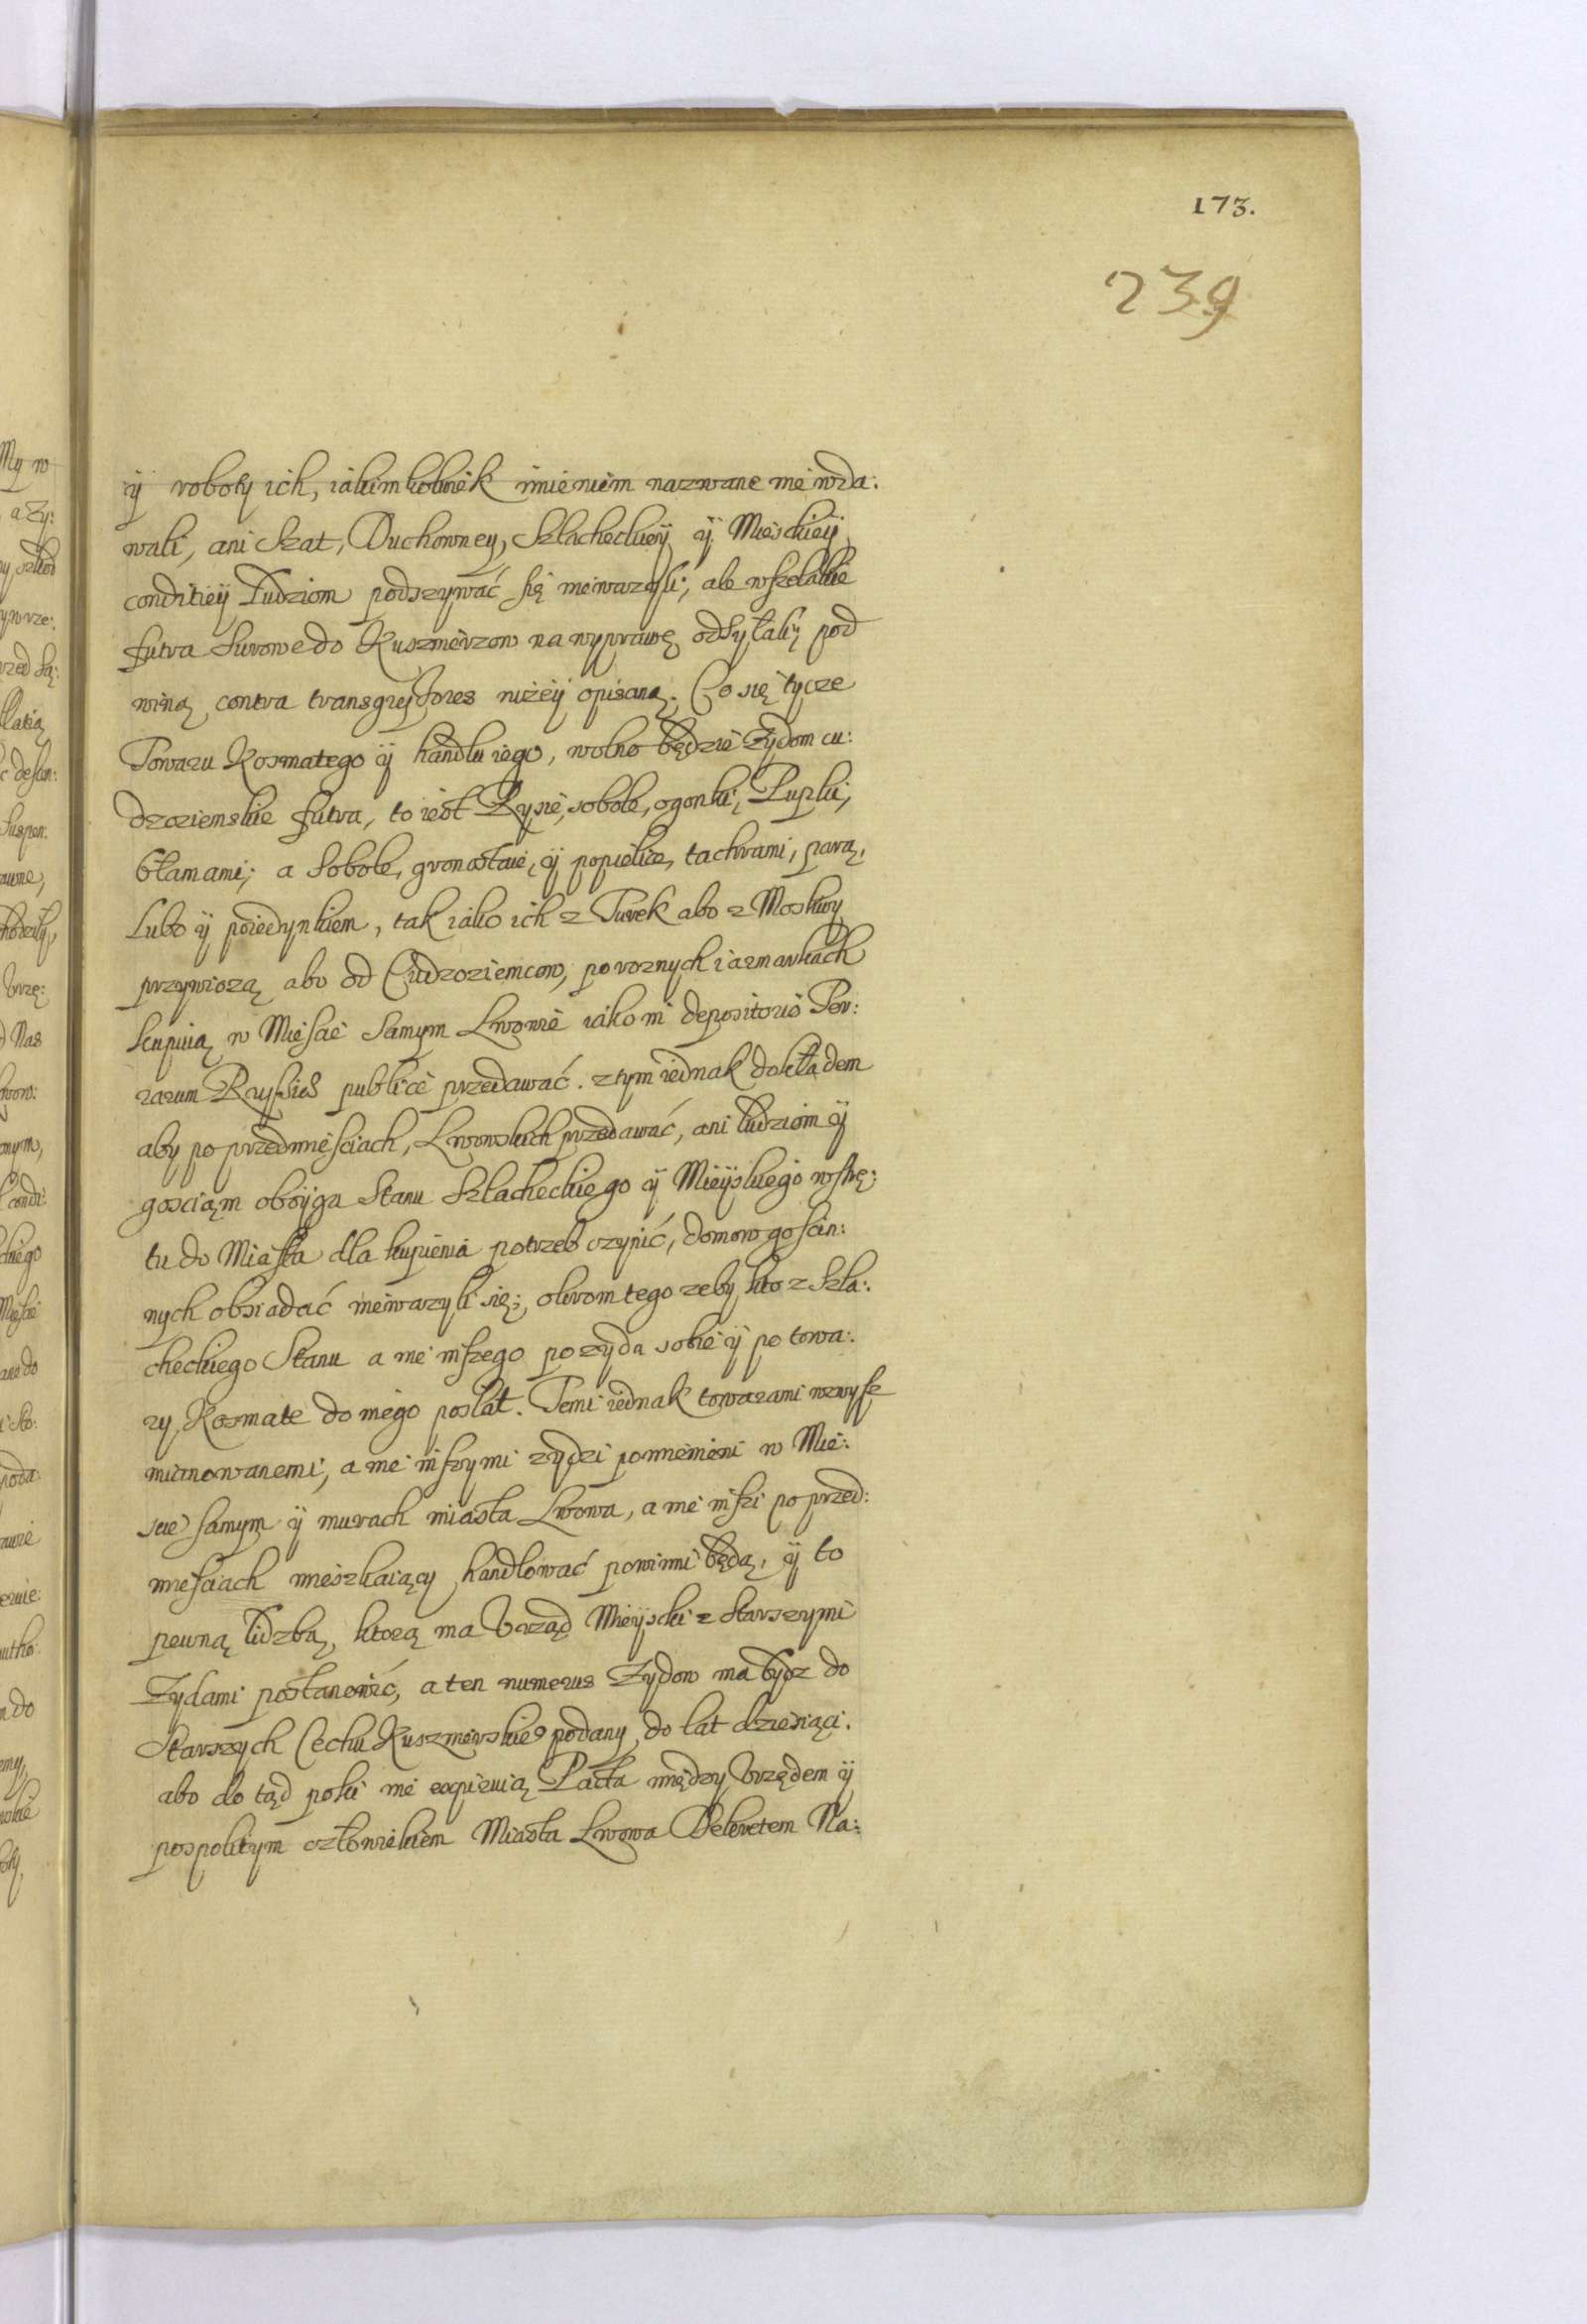 173.
239
ÿ roboty ich, iakimkolwiek imieniem nazwane nie wda:
wali, ani Szat, Duchowney, Szlacheckieÿ ÿ Mieskieÿ
conditieÿ Ludziom podszywać się nieważyli, ale wszelakie
futra Surowe do Kuszmerzow na wyprawę odsyłali, pod
winą contra transgressores niżeÿ opisaną. Co się tycze
Towaru Kosmatego ÿ handlu iego, wolno będzie Zydom cu:
dzoziemskie futra, to iest Rysie, sobole, ogonki, Pupki,
błamami; a Sobole, gronostaie, ÿ popielice, tachrami, parą,
Lubo ÿ poiedynkiem, tak iako ich z Turek abo z Moskwy
przywiozą abo od Cudzoziemcow, po roznych iarmarkach
skupuią w Mieście Samym Lwowie iako in depositorio Ter:
rarum Russiæ publice przedawać. z tym iednak dokładem
aby po przedmieściach, Lwowskich przedawać, ani ludziom ÿ
gosciąm oboÿga Stanu Szlacheckiego ÿ Mieÿskiego wstrę:
tu do Miasta dla kupienia potrzeb czynić, domow gościn:
nych obsiadać nieważyli się; okrom tego zeby kto z Szla:
checkiego Stanu a nie inszego po zyda sobie ÿ po towa:
ry Kosmate do niego posłał. Temi iednak towarami wzwysz
mianowanemi, a nie inszymi zydzi pomienieni w Mie:
scie samym ÿ murach miasta Lwowa, a nie inszi po przed:
mieściach mieszkaiący handlować powinni będą, ÿ to
pewną liczbą, ktorą ma Vrząd Mieÿski z Starszymi
Zydami postanowić, a ten numerus Zydow ma bydz do
Starszych Cechu Kuszmierskie podany, do lat dziesiąci.
abo do tąd poki nie expiruią Pacta między Vrzędem ÿ
pospolitym człowiekiem Miasta Lwowa Dekretem Na: